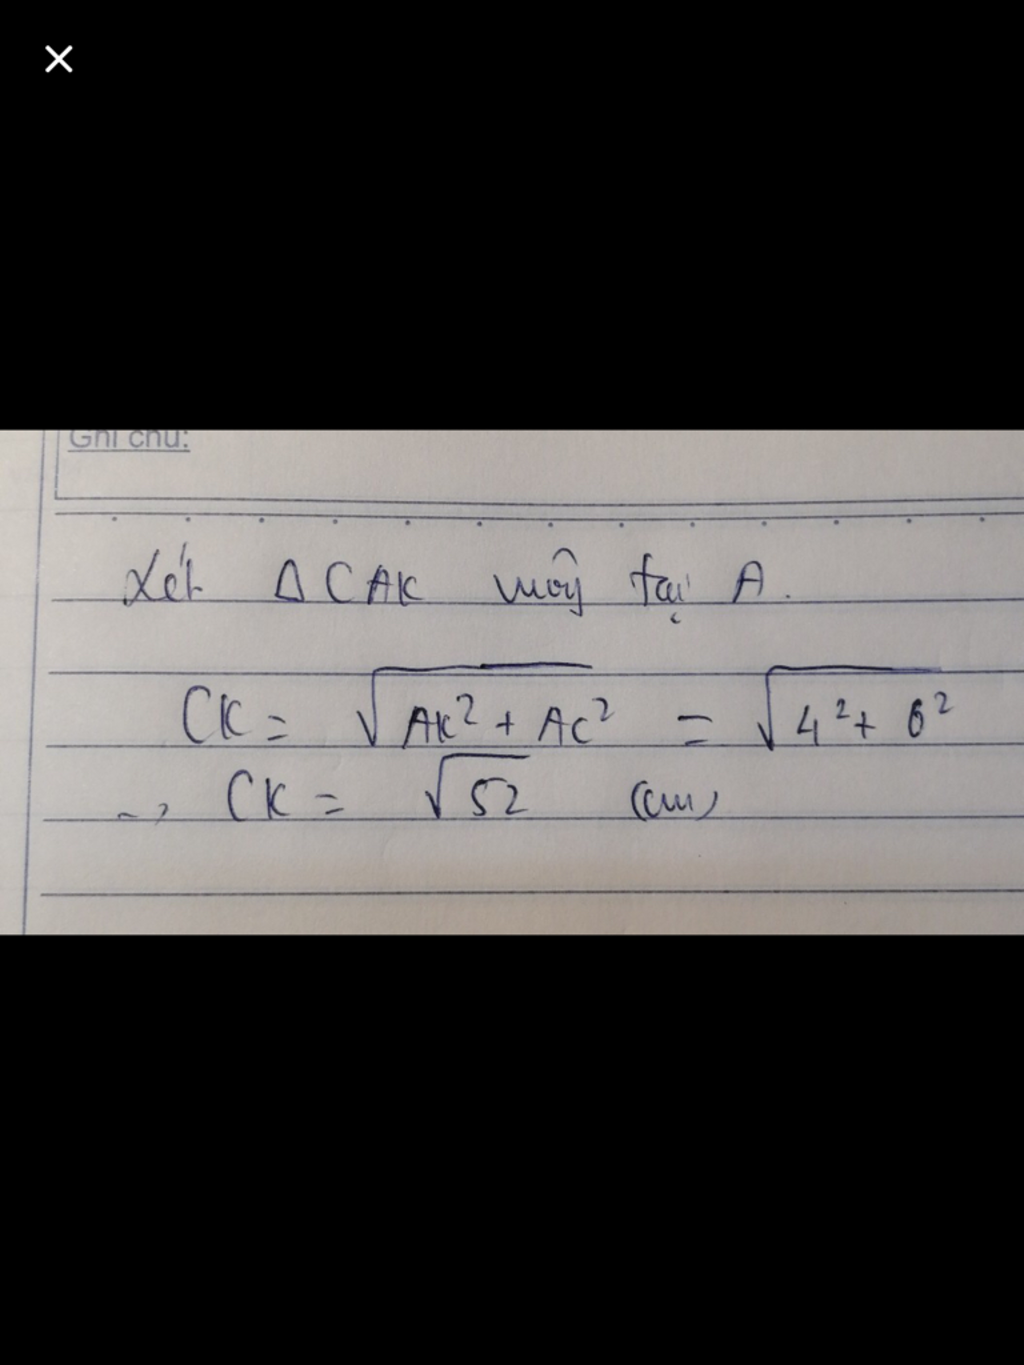 Ghi chú:
Xét Δ CAK vuông tại A.
CK = √AK² + AC² = √4² + 6²
→ CK = √52 (cm)